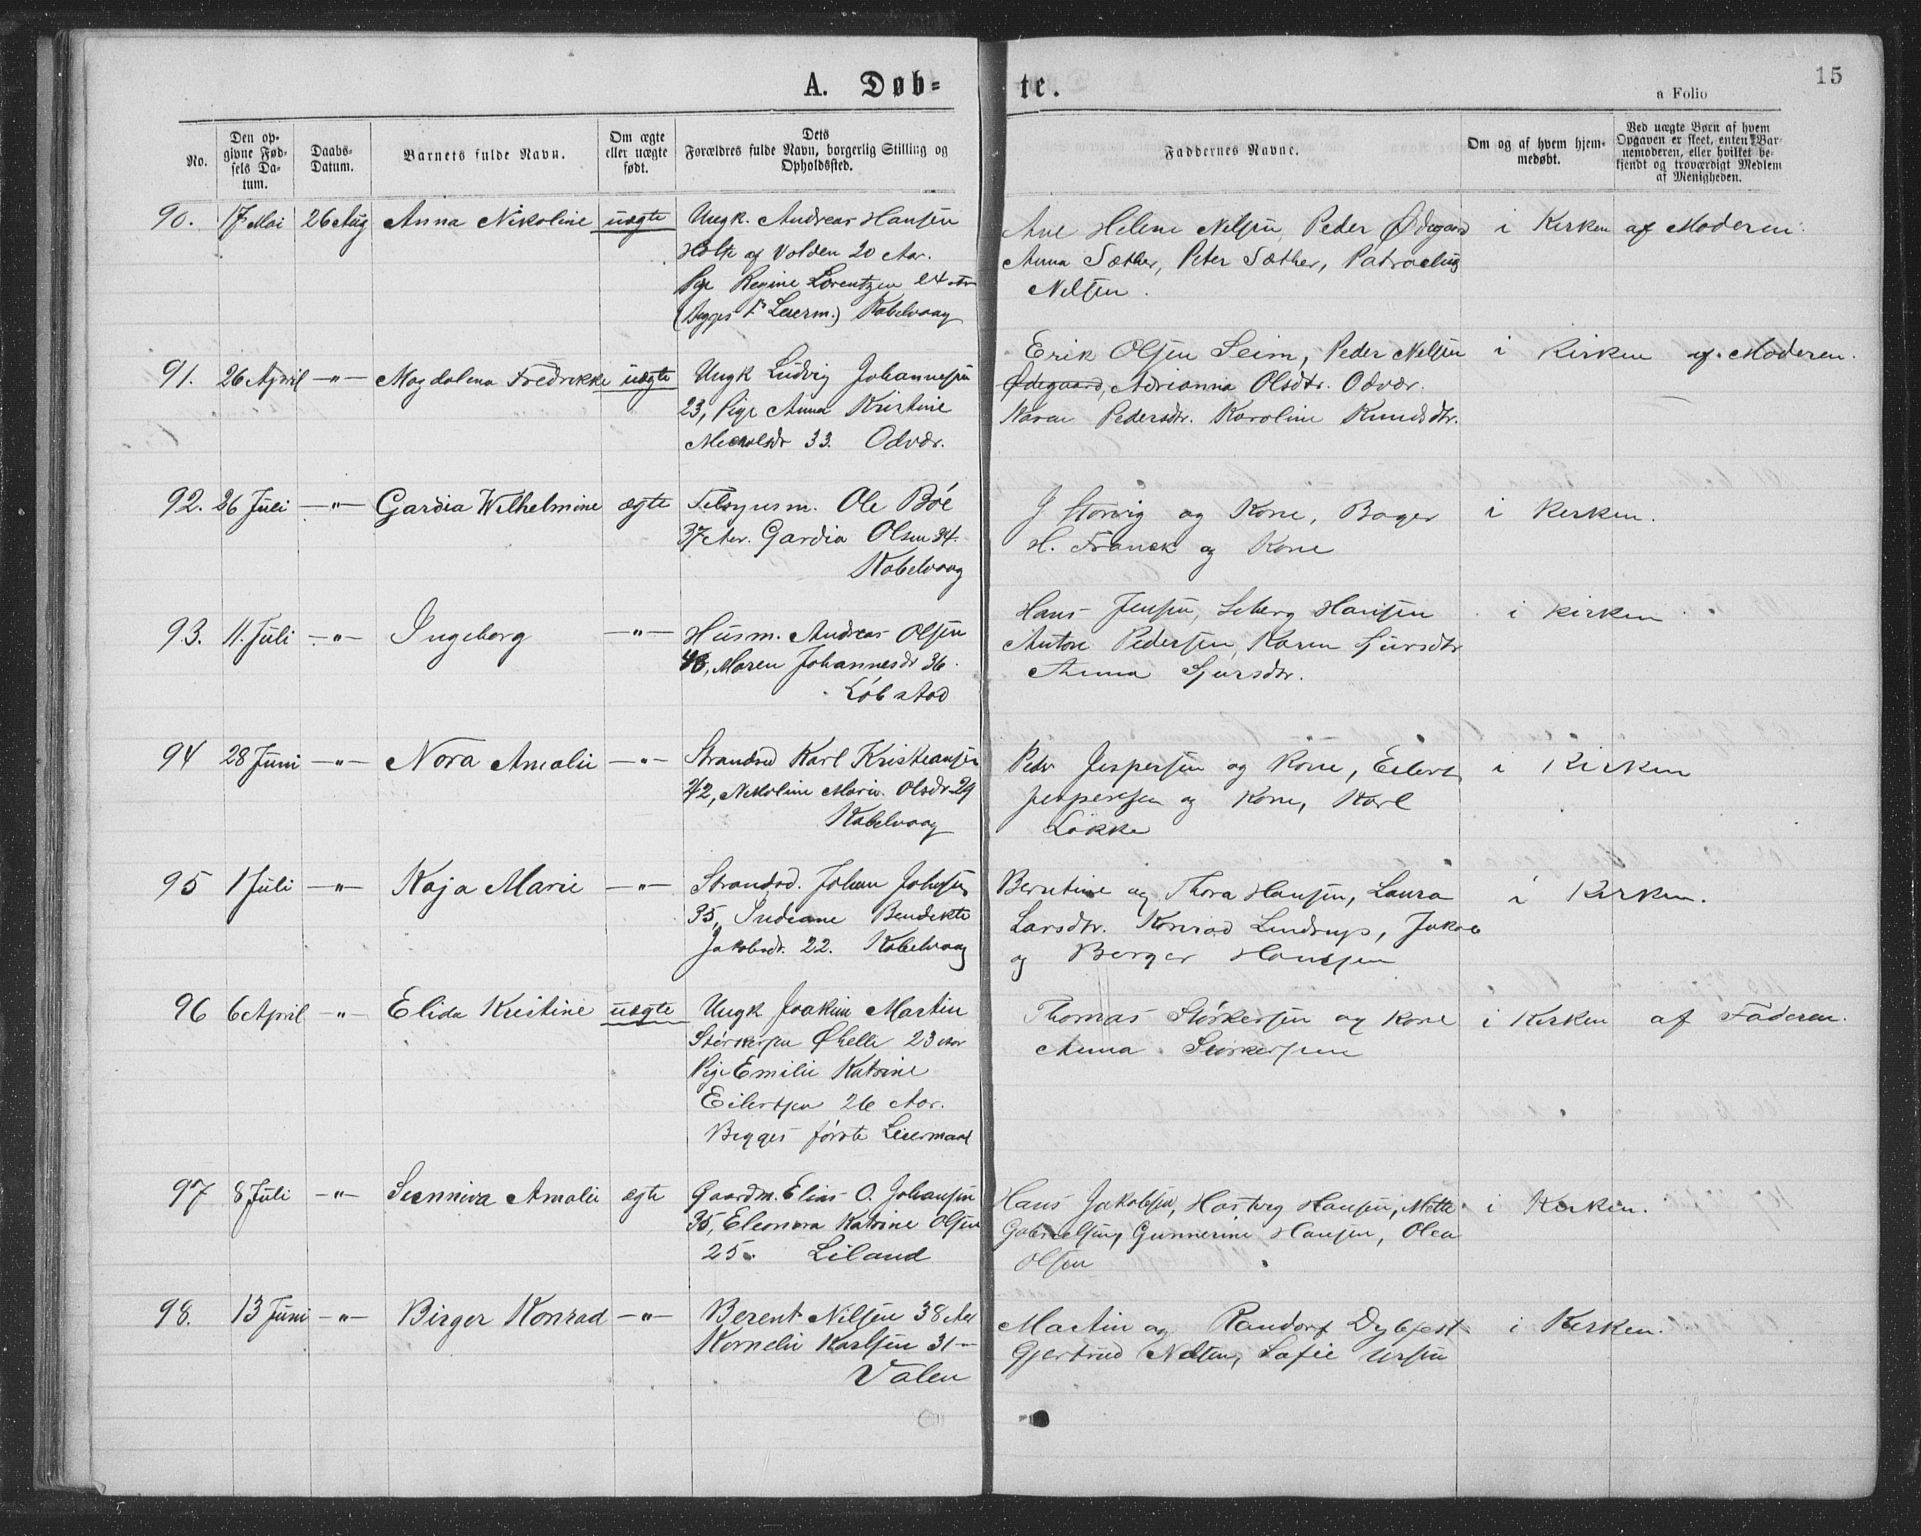 A. Døb-
te.
15
a Folio
No.
Den op-
givne Fød-
sels Da-
tum.
Daabs-
Datum.
Barnets fulde Navn.
Om ægte
eller uægte
født.
Dets
Forældres fulde Navn, borgerlig Stilling og
Opholdssted.
Faddernes Navne.
Om og af hvem hjem-
medøbt.
Ved uægte Børn af hvem
Opgaven er skeet, enten Bar-
nemoderen, eller hvilket be-
kjendt og troværdigt Medlem
af Menigheden.
90. 17 Mai 26 Aug Anna Nikoline uægte Ungk. Andreas Hansen
Holte af Volden 20 Aar.
Pige Regine Lorentzen 24 Aar
(Begges 1ste Leierm.) Kabelvaag
Ane Helene Nilsen, Peder Ødegaard i Kirken af Moderen.
Anna Sæther, Peter Sæther, Patroclus
Nilsen.
91. 26 April —"— Magdalena Fredrikke uægte Ungk Ludvig Johannesen
23, Pige Anna Kristine
Mickelsdr 33. Odvær.
Erik Olsen Seim, Peder Nilsen i Kirken af Moderen.
Ødegaard, Adrianna Olsdtr. Odvær.
Maren Pedersdtr. Karoline Knudsdtr.
92. 26 Juli —"— Gardia Wilhelmine ægte Ole Böe
37 Aar. Gardia Olsen 34.
Kabelvaag
J Storvig og Kone, Bager i Kirken.
H. Franck og Kone
93. 11. Juli —"— Ingeborg —"— Husm. Andreas Olsen
48, Maren Johannesdr 36.
Löbstad
Hans Jensen, Seberg Hansen i Kirken
Anton Pedersen, Karen Sjursdtr
Anna Sjursdtr.
94 28 Juni —"— Nora Amalie —"— Strandsd Karl Kristiansen
42, Nikoline Marie Olsdr 29
Kabelvaag
Peder Jespersen og Kone, Eilert i Kirken
Jespersen og Kone, Karl
Lökke
95 1 Juli —"— Kaja Marie —"— Strandsd. Johan Johnsen
35, Indiane Bendikte
Jakobsdr. 22. Kabelvaag
Berntine og Thora Hansen, Laura i Kirken.
Larsdtr. Konrad Lindrup, Jakob
og Berger Hansen
96 6 April —"— Elida Kristine uægte Ungk Joakim Martin
Störkersen Ørelle 23 Aar
Pige Emilie Katrine
Eilertsen 26 Aar.
Begges förste Leiermaal
Thomas Störkersen og Kone i Kirken af Faderen.
Anna Störkersen
97 8 Juli —"— Sunniva Amalie ægte Gaardm. Elias O. Johansen
35, Eleonora Katrine Olsen
25. Liland
Hans Jakobsen, Hartvig Hansen, Mette i Kirken.
Gabrielsen, Gunnerine Hansen, Olea
Olsen
98. 13 Juni —"— Birger Konrad —"— Berent Nilsen 38 Aar
Kornelie Karlsen 31 —
Valen
Martin og Randorf Dybfest i Kirken.
Gjertrud Nilsen, Sofie Ursin